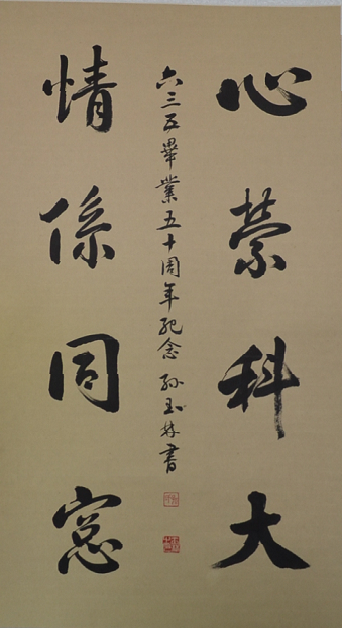 心萦科大
情係同窓
六三五畢業五十周年紀念 孙玉林書